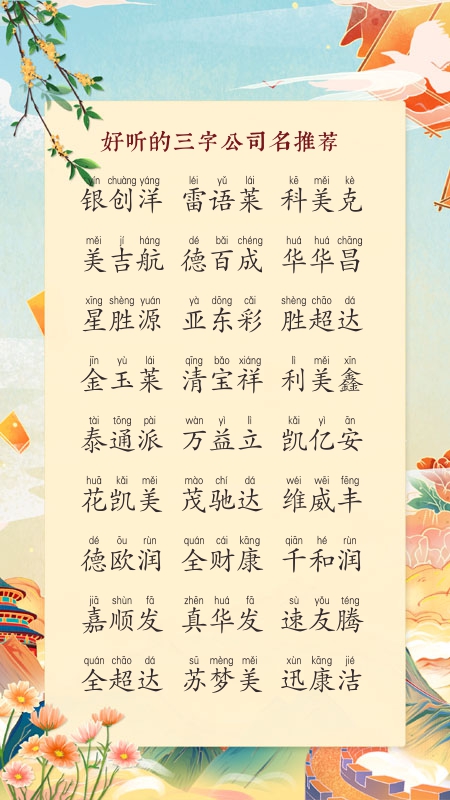 好听的三字公司名推荐
yín chuàng yáng léi yǔ lái kē měi kè
银创洋 雷语莱 科美克
měi jí háng dé bǎi chéng huá huá chāng
美吉航 德百成 华华昌
xīng shèng yuán yà dōng cǎi shèng chāo dá
星胜源 亚东彩 胜超达
jīn yù lái qīng bǎo xiáng lì měi xīn
金玉莱 清宝祥 利美鑫
tài tōng pài wàn yì lì kǎi yì ān
泰通派 万益立 凯亿安
huā kǎi měi mào chí dá wéi wēi fēng
花凯美 茂驰达 维威丰
dé ōu rùn quán cái kāng qiān hé rùn
德欧润 全财康 千和润
jiā shùn fā zhēn huá fā sù yǒu téng
嘉顺发 真华发 速友腾
quán chāo dá sū mèng měi xùn kāng jié
全超达 苏梦美 迅康洁